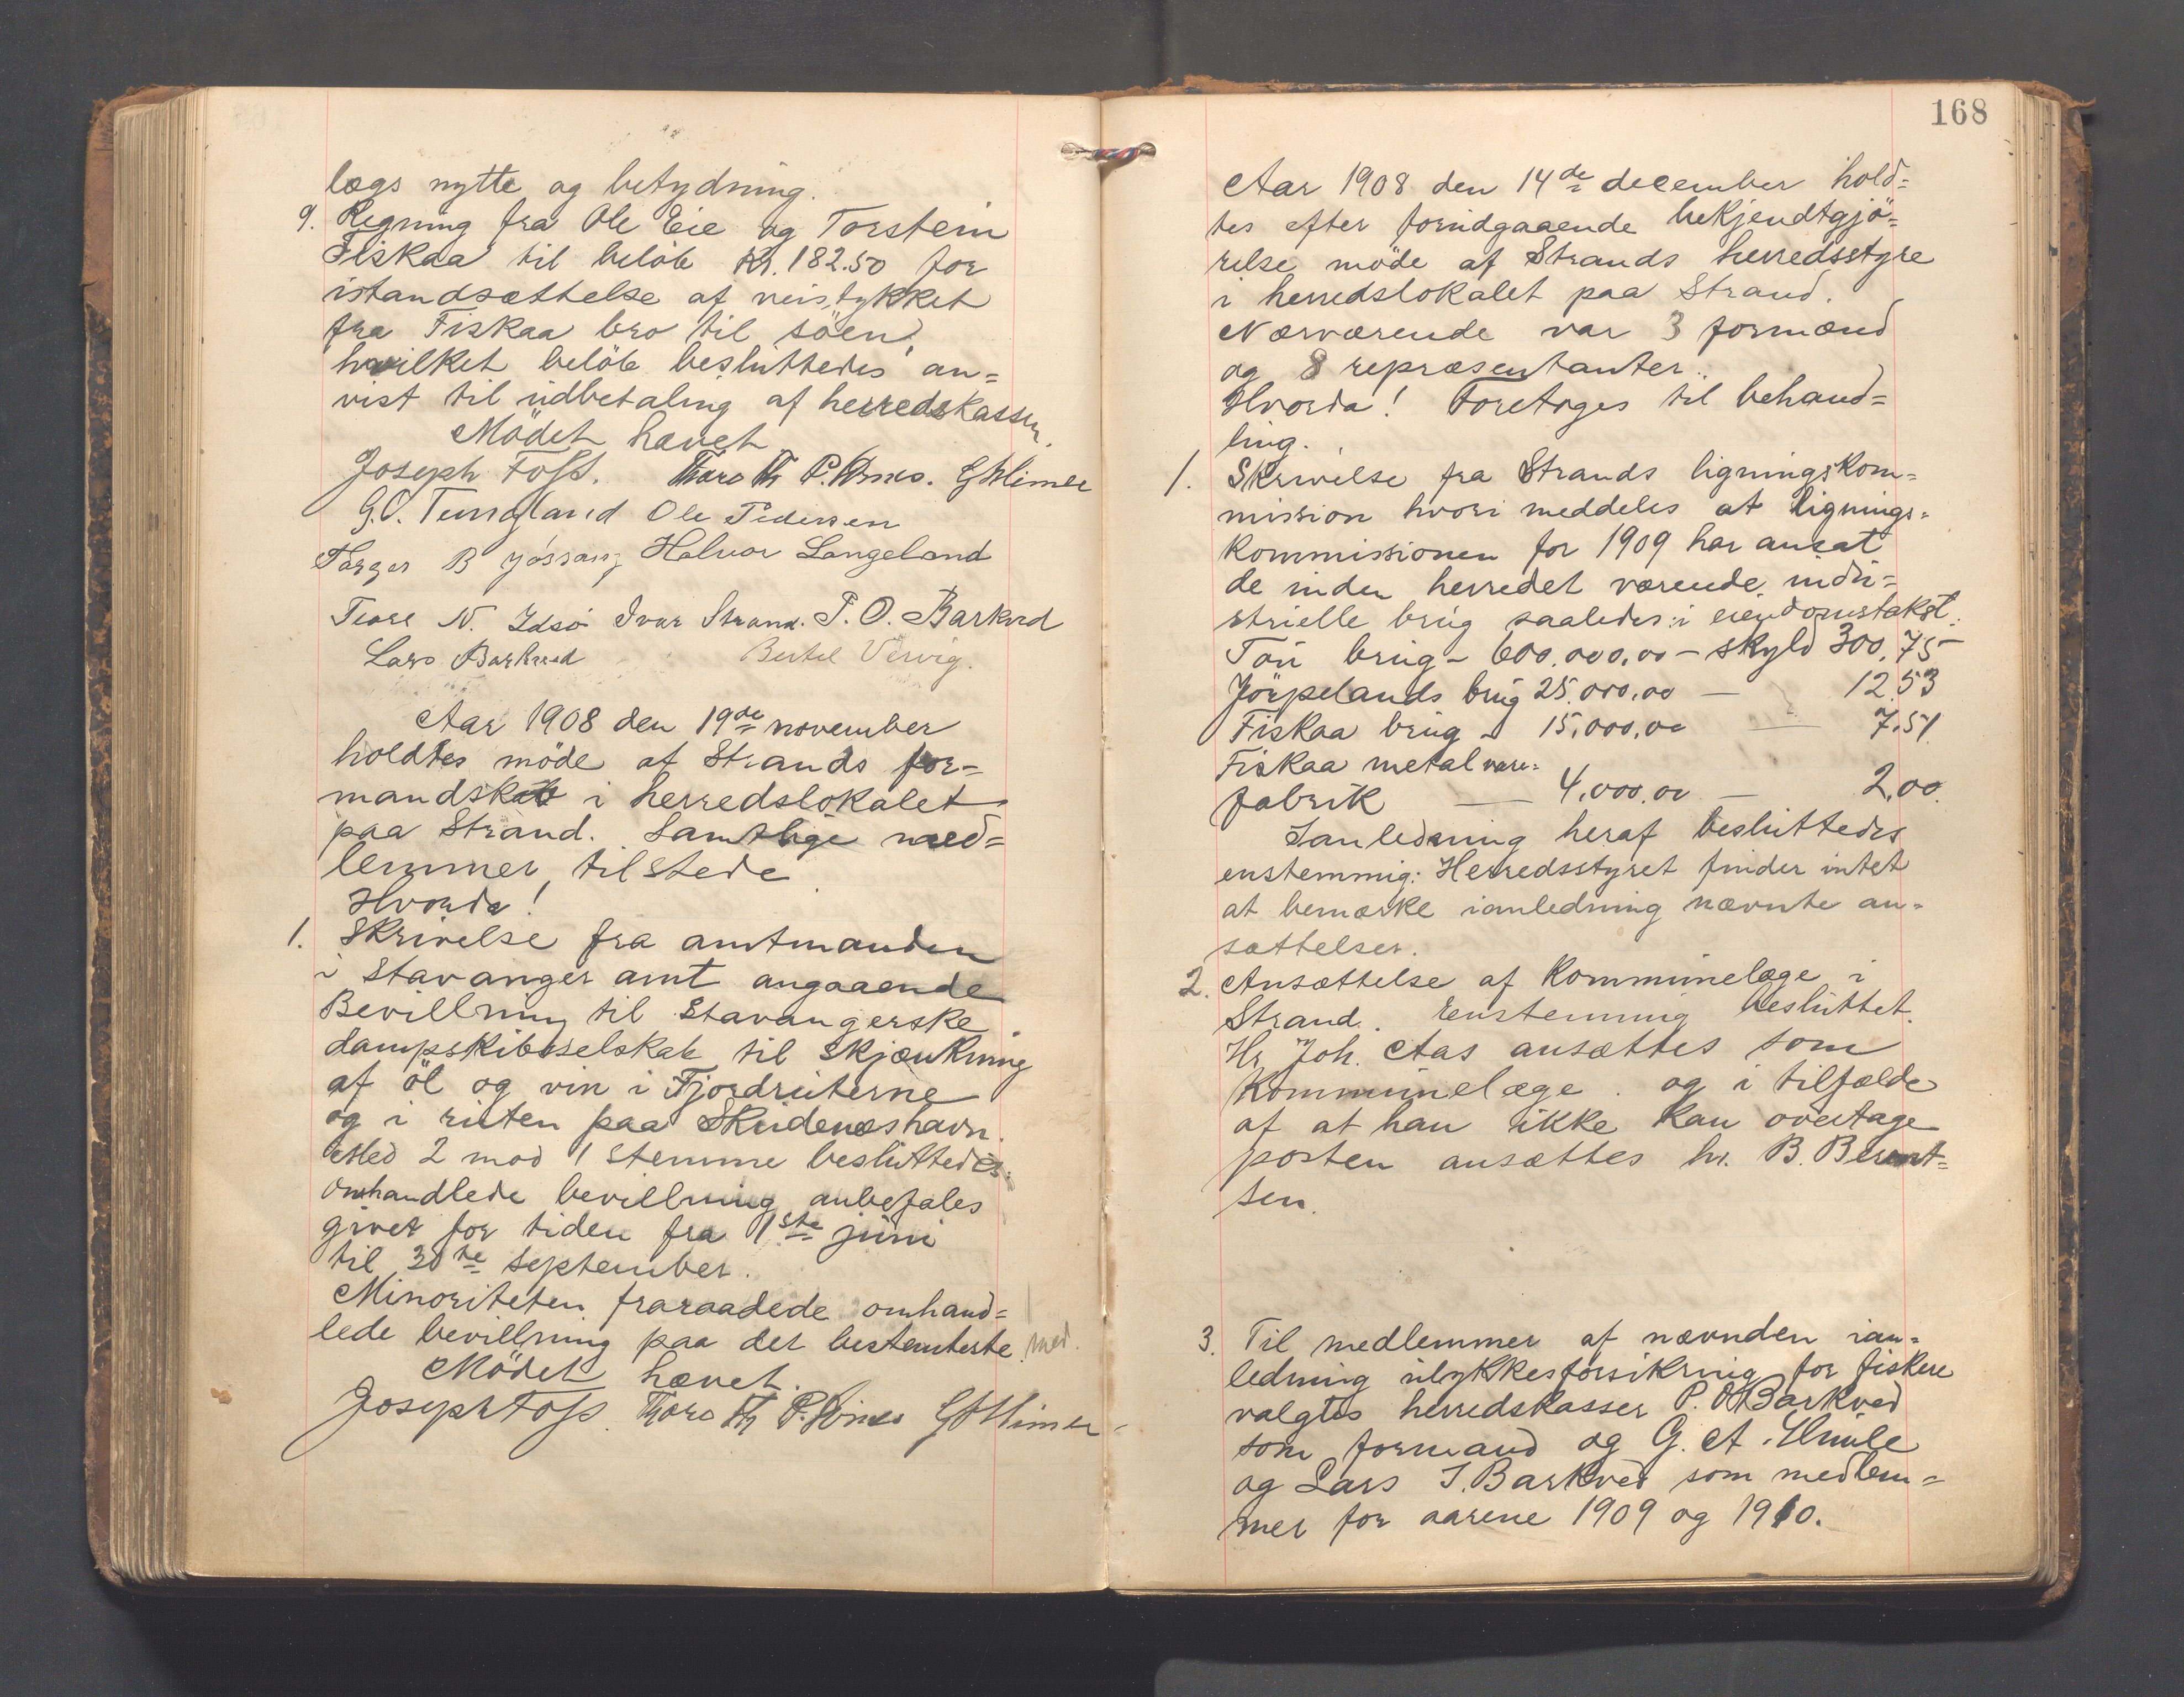 lægs nytte og betydning.
9. Regning fra Ole Eie og Torstein
Fiskaa til beløb kr. 182.50 for
istandsættelse af veistykket
fra Fiskaa bro til søen,
hvilket beløb besluttedes an=
vist til udbetaling af herredskassen.
Mødet hævet
Joseph Foss. Thore Th P. G Himle
G.O. Tungland Ole Pedersen
Jøssang Halvor Langeland
Tore N. Idsø Ivar Strand. P. O. Barkved
Lars Barkved Bertel Vervig.
Aar 1908 den 19de november
holdtes møde af Strands for=
mandskab i herredslokalet
paa Strand. Samtlige med=
lemmer tilstede.
Hvorda!
1. Skrivelse fra amtmanden
i Stavanger amt angaaende
Bevillning til Stavangerske
dampskibsselskab til skjænkning
af öl og vin i Fjordruterne
og i ruten paa Skudeneshavn.
Med 2 mod 1 stemme besluttedes:
Omhandlede bevillning anbefales
givet for tiden fra 1ste juni
til 30te september.
Minoriteten fraraadede omhand=
lede bevillning paa det bestemteste.
Mødet hævet.
Joseph Foss. Thore Th P. G Himle
168
Aar 1908 den 14de december hold=
tes efter forudgaaende bekjendtgjö=
relse møde af Strands herredsstyre
i herredslokalet paa Strand.
Nærværende var 3 formænd
og 8 repræsentanter.
Hvorda! Foretoges til behand=
ling.
1. Skrivelse fra Strands ligningskom=
mission hvori meddeles at lignings=
kommissionen for 1909 har ansat
de inden herredet værende indu=
strielle brug saaledes: i eiendomstakst.
Tou brug - 600.000,00 - skyld 300,75
Jörpelands brug 25.000,00 — 12,53
Fiskaa brug - 15.000,00 — 7,51
Fiskaa metalvare=
fabrik — 4,000.00 — 2,00.
Ianledning heraf besluttedes
enstemmig: Herredsstyret finder intet
at bemærke ianledning nævnte an=
sættelser.
2. Ansættelse af kommunelæge i
Strand. Enstemmig besluttet.
Hr Joh. Aas ansættes som
kommunelæge. og i tilfælde
af at han ikke kan overtage
posten ansættes hr. B. Berent=
sen.
3. Til medlemmer af nævnden ian=
ledning ulykkesforsikring for fiskere
valgtes herredskasser P. O Barkved
som formand og G. A. Himle
og Lars I. Barkved som medlem=
mer for aarene 1909 og 1910.